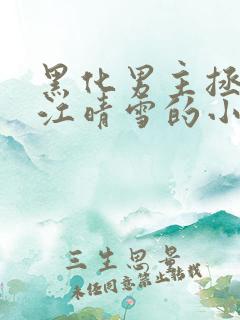 黑化男主拯
江晴雪的小
三生思景
未经同意禁止转载